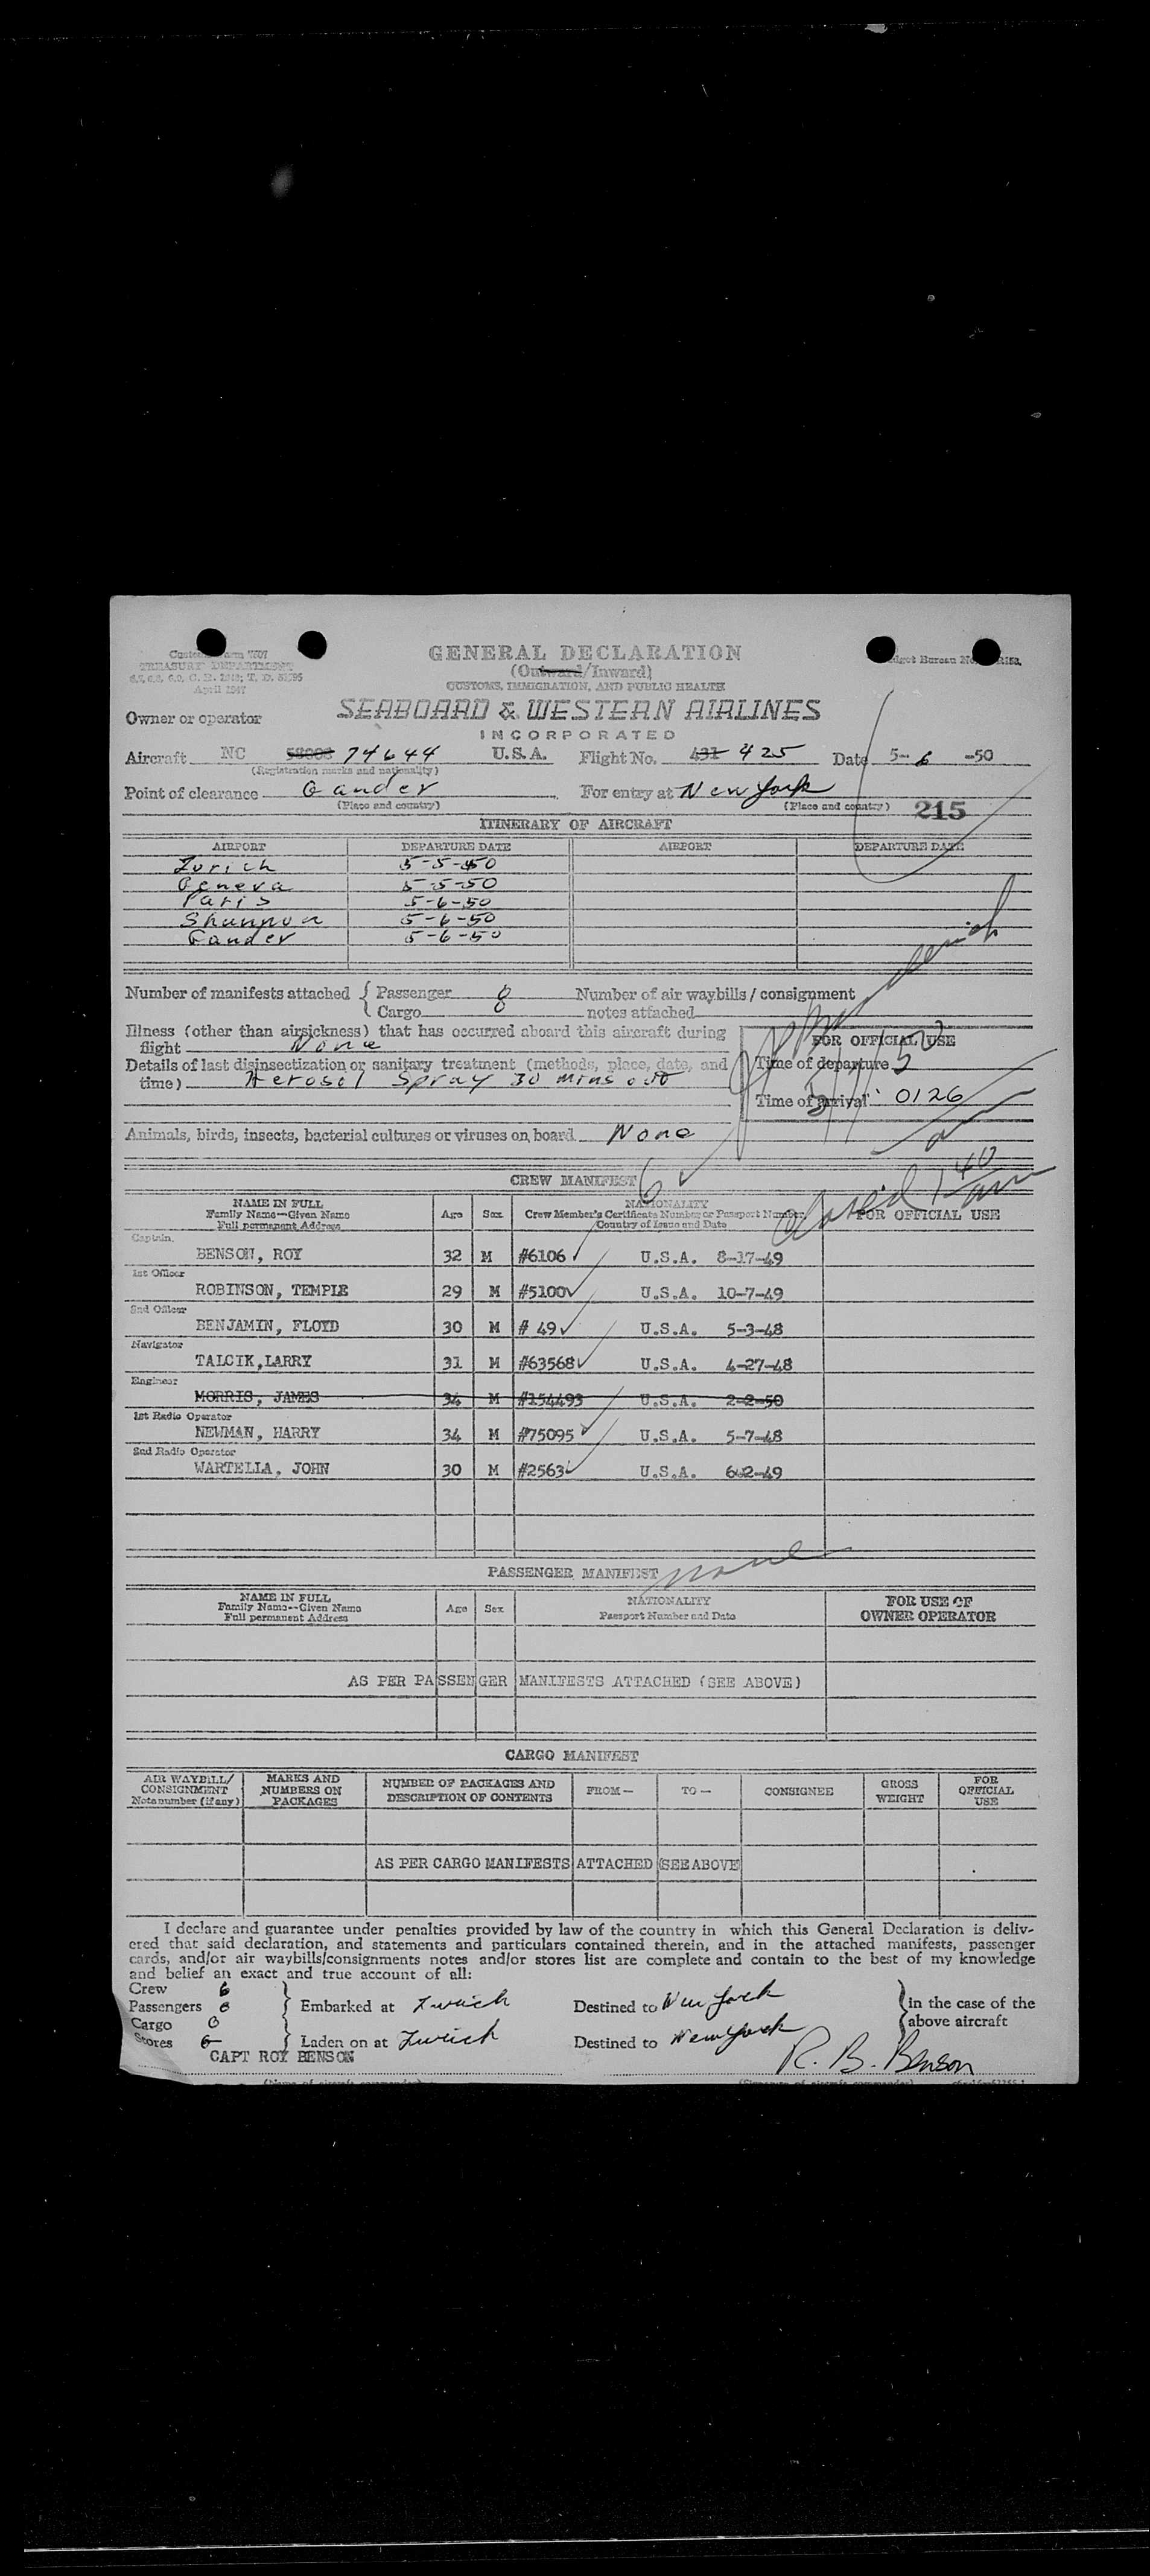 Customs Form 7507
TREASURY DEPARTMENT
April 1947
GENERAL DECLARATION
(Outward/Inward)
CUSTOMS, IMMIGRATION, AND PUBLIC HEALTH
Budget Bureau No.
Owner or operator SEABOARD & WESTERN AIRLINES
INCORPORATED
Aircraft NC 74644 U.S.A. Flight No. 431 425 Date 5-6-50
(Registration marks and nationality)
Point of clearance Gander For entry at New York
(Place and country) (Place and country) 215
ITINERARY OF AIRCRAFT
AIRPORT DEPARTURE DATE AIRPORT DEPARTURE DATE
Zurich 5-5-50
Geneva 5-5-50
Paris 5-6-50
Shannon 5-6-50
Gander 5-6-50
Number of manifests attached { Passenger 0 Number of air waybills / consignment
{ Cargo 0 notes attached
Illness (other than airsickness) that has occurred aboard this aircraft during
flight None
FOR OFFICIAL USE
Details of last disinsectization or sanitary treatment (methods, place, date, and
time) Aerosol Spray 30 mins out
Time of departure
Time of arrival 0126
Animals, birds, insects, bacterial cultures or viruses on board None
CREW MANIFEST 6
NAME IN FULL
Family Name--Given Name
Full permanent Address
Age Sex NATIONALITY
Crew Member's Certificate Number or Passport Number
Country of Issue and Date
FOR OFFICIAL USE
Captain
BENSON, ROY 32 M #6106 U.S.A. 8-17-49
1st Officer
ROBINSON, TEMPLE 29 M #5100 U.S.A. 10-7-49
2nd Officer
BENJAMIN, FLOYD 30 M # 49 U.S.A. 5-3-48
Navigator
TALCIK,LARRY 31 M #63568 U.S.A. 4-27-48
Engineer
MORRIS, JAMES 34 M #154493 U.S.A. 2-2-50
1st Radio Operator
NEWMAN, HARRY 34 M #75095 U.S.A. 5-7-48
2nd Radio Operator
WARTELLA, JOHN 30 M #2563 U.S.A.
PASSENGER MANIFEST none
NAME IN FULL
Family Name--Given Name
Full permanent Address
Age Sex NATIONALITY
Passport Number and Date
FOR USE OF
OWNER OPERATOR
AS PER PASSENGER MANIFESTS ATTACHED (SEE ABOVE)
CARGO MANIFEST
AIR WAYBILL/
CONSIGNMENT
Note number (if any)
MARKS AND
NUMBERS ON
PACKAGES
NUMBER OF PACKAGES AND
DESCRIPTION OF CONTENTS
FROM— TO— CONSIGNEE
GROSS
WEIGHT
FOR
OFFICIAL
USE
AS PER CARGO MANIFESTS ATTACHED (SEE ABOVE)
I declare and guarantee under penalties provided by law of the country in which this General Declaration is deliv-
ered that said declaration, and statements and particulars contained therein, and in the attached manifests, passenger
cards, and/or air waybills/consignments notes and/or stores list are complete and contain to the best of my knowledge
and belief an exact and true account of all:
Crew 6
Passengers 0 } Embarked at Zurich Destined to New York } in the case of the
Cargo 0 above aircraft
Stores } Laden on at Zurich Destined to New York
CAPT ROY BENSON R. B. Benson